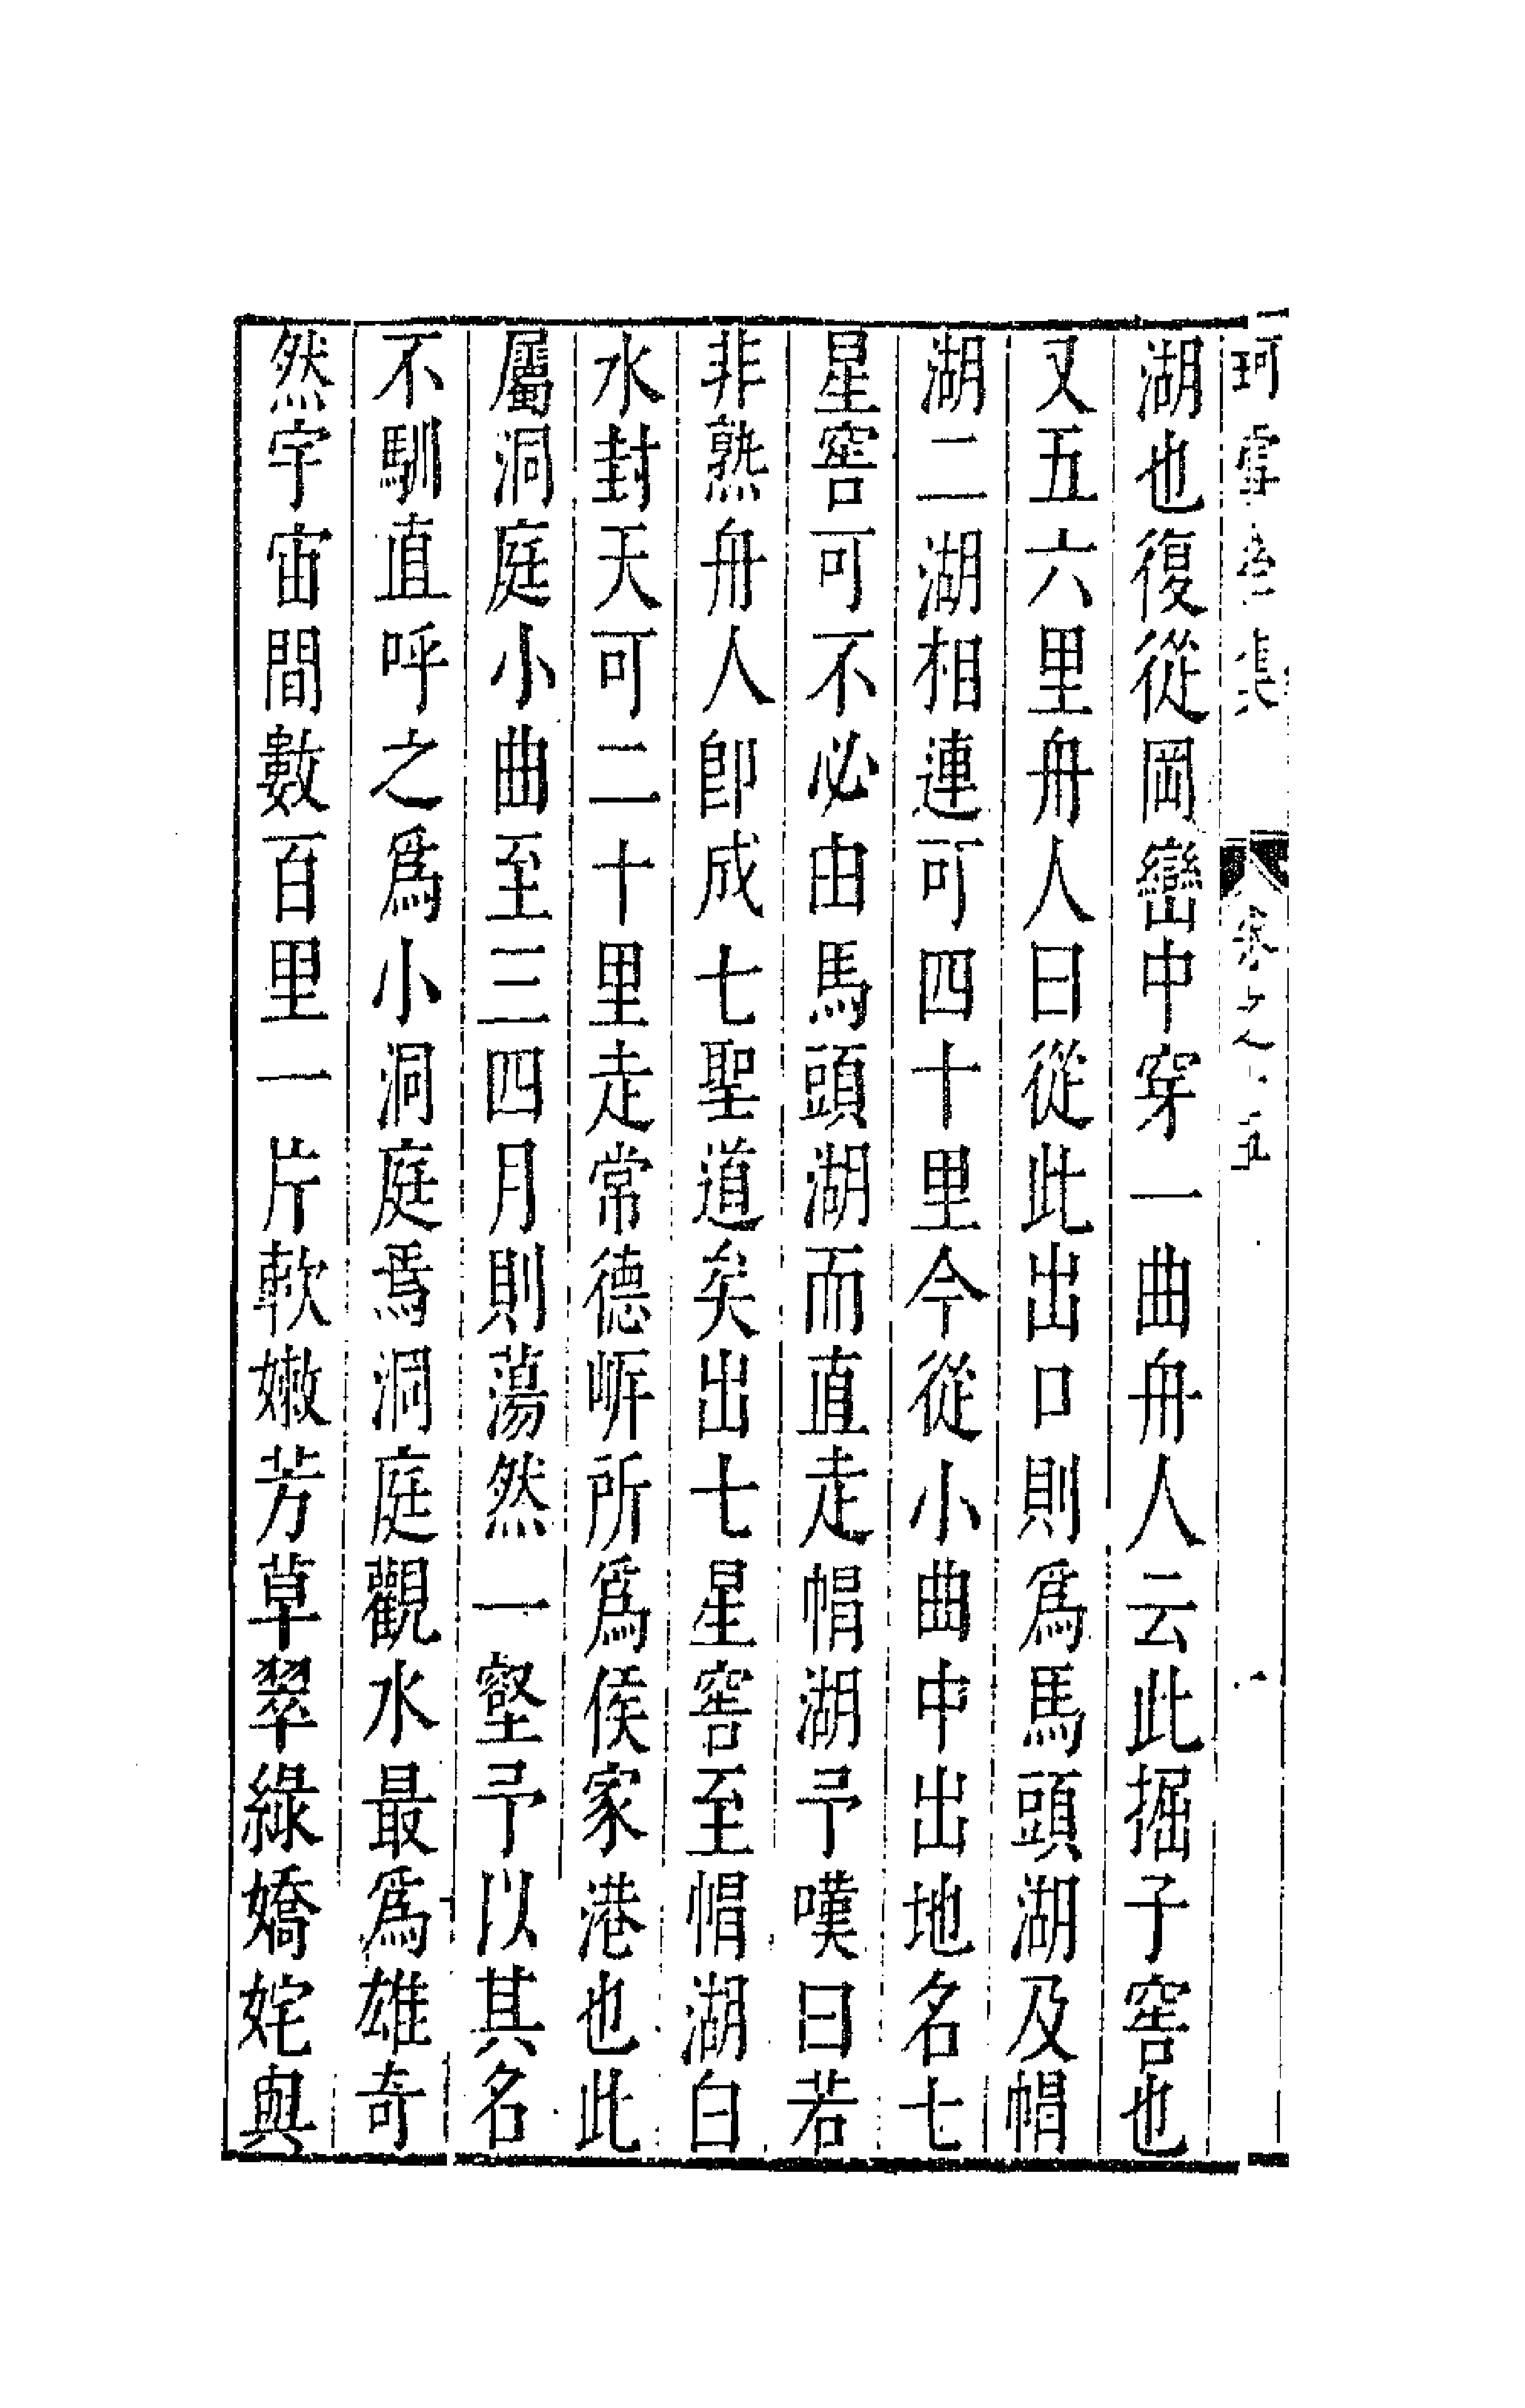 珂雪齋集 卷之十五
湖也復從岡巒中穿一曲舟人云此掘子窖也
又五六里舟人曰從此出口則爲馬頭湖及㡌
湖二湖相連可四十里今從小曲中出地名七
星窖可不必由馬頭湖而直走㡌湖予嘆曰若
非熟舟人卽成七聖道矣出七星窖至㡌湖白
水封天可二十里走常德𡶜所爲侯家港也此
屬洞庭小曲至三四月則蕩然一壑予以其名
不馴直呼之爲小洞庭焉洞庭觀水最爲雄奇
然宇宙間數百里一片軟嫩芳草翠綠嬌姹與